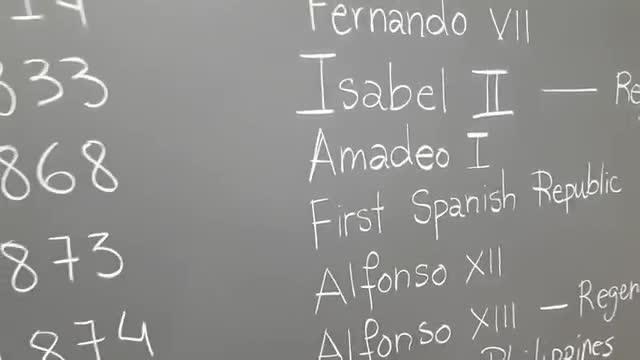 14 Fernando VII
833 Isabel II — Re
868 Amadeo I
First Spanish Republic
873 Alfonso XII
874 Alfonso XIII — Regen
Philippines